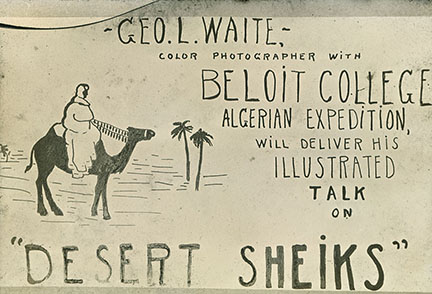 -GEO. L. WAITE,-
COLOR PHOTOGRAPHER WITH
BELOIT COLLEGE
ALGERIAN EXPEDITION,
WILL DELIVER HIS
ILLUSTRATED
TALK
ON
"DESERT SHEIKS"